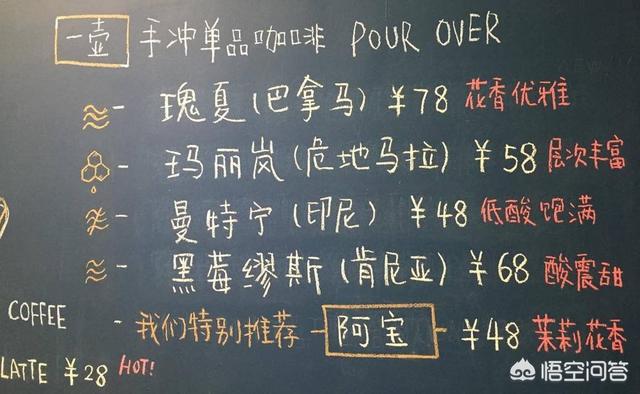 一壶 手冲单品咖啡 POUR OVER
- 瑰夏(巴拿马) ¥78 花香优雅
- 玛丽岚(危地马拉) ¥58 层次丰富
- 曼特宁(印尼) ¥48 低酸饱满
- 黑莓缪斯(肯尼亚) ¥68 酸震甜
COFFEE - 我们特别推荐 - 阿宝 ¥48 茉莉花香
LATTE ¥28 HOT!
悟空问答